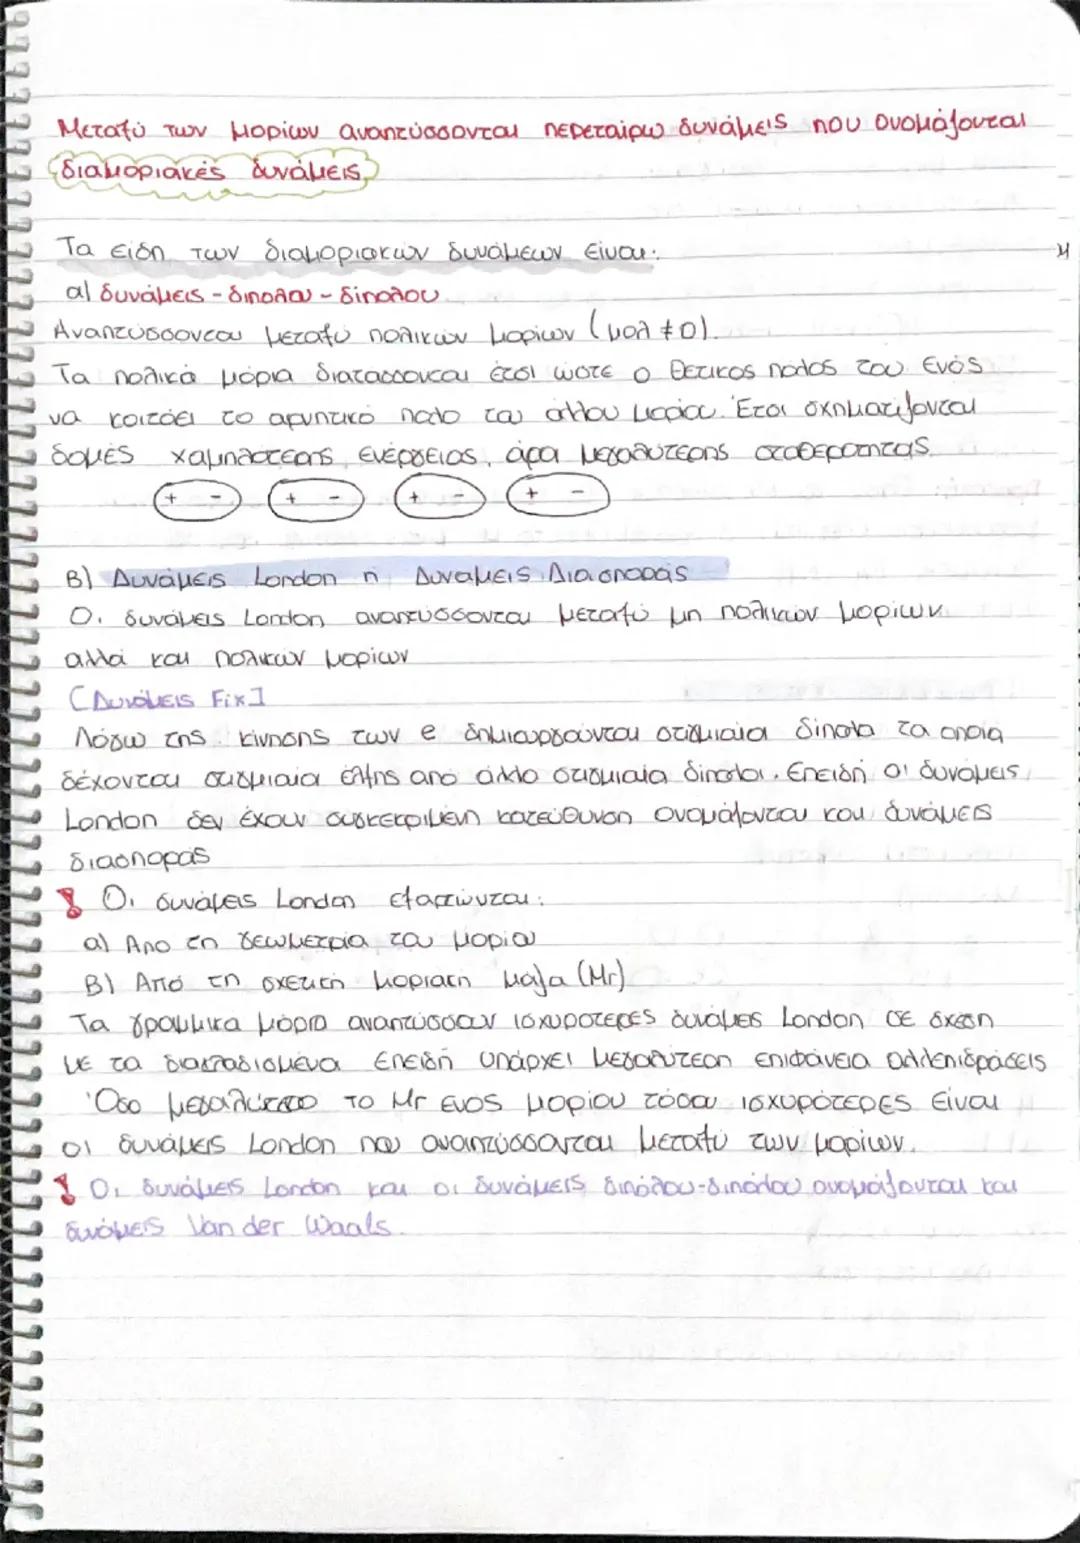 Μεταξύ των μορίων αναπτύσσονται περεταίρω δυνάμεις που ονομάζονται
διαμοριακές δυνάμεις.
Τα είδη των διαμοριακών δυνάμεων είναι:
α) δυνάμεις - διπόλου - διπόλου
Αναπτύσσονται μεταξύ πολικών μορίων (μολ ≠ 0).
Τα πολικά μόρια διατάσσονται έτσι ώστε ο θετικός πόλος του ενός
να κοιτάει το αρνητικό πόλο του άλλου μορίου. Έτσι σχηματίζονται
δομές χαμηλότερης ενέργειας, άρα μεγαλύτερης σταθερότητας.
+ - + - + - + -
Β) Δυνάμεις London ή Δυνάμεις Διασποράς
Οι δυνάμεις London αναπτύσσονται μεταξύ μη πολικών μορίων
αλλά και πολικών μορίων
[Δυνάμεις Fix]
Λόγω της κίνησης των e δημιουργούνται στιγμιαία δίπολα τα οποία
δέχονται στιγμιαία έλξης από άλλο στιγμιαία δίπολο. Επειδή οι δυνάμεις
London δεν έχουν συγκεκριμένη κατεύθυνση ονομάζονται και δυνάμεις
διασποράς
! Οι δυνάμεις London εξαρτώνται:
α) Από τη γεωμετρία του μορίου
Β) Από τη σχετική μοριακή μάζα (Mr)
Τα γραμμικά μόρια αναπτύσσουν ισχυρότερες δυνάμεις London σε σχέση
με τα διακλαδισμένα επειδή υπάρχει μεγαλύτερη επιφάνεια αλληλεπιδράσεις
Όσο μεγαλύτερο το Mr ενός μορίου τόσου ισχυρότερες είναι
οι δυνάμεις London που αναπτύσσονται μεταξύ των μορίων.
! Οι δυνάμεις London και οι δυνάμεις διπόλου-διπόλου ονομάζονται και
δυνάμεις Van der Waals.